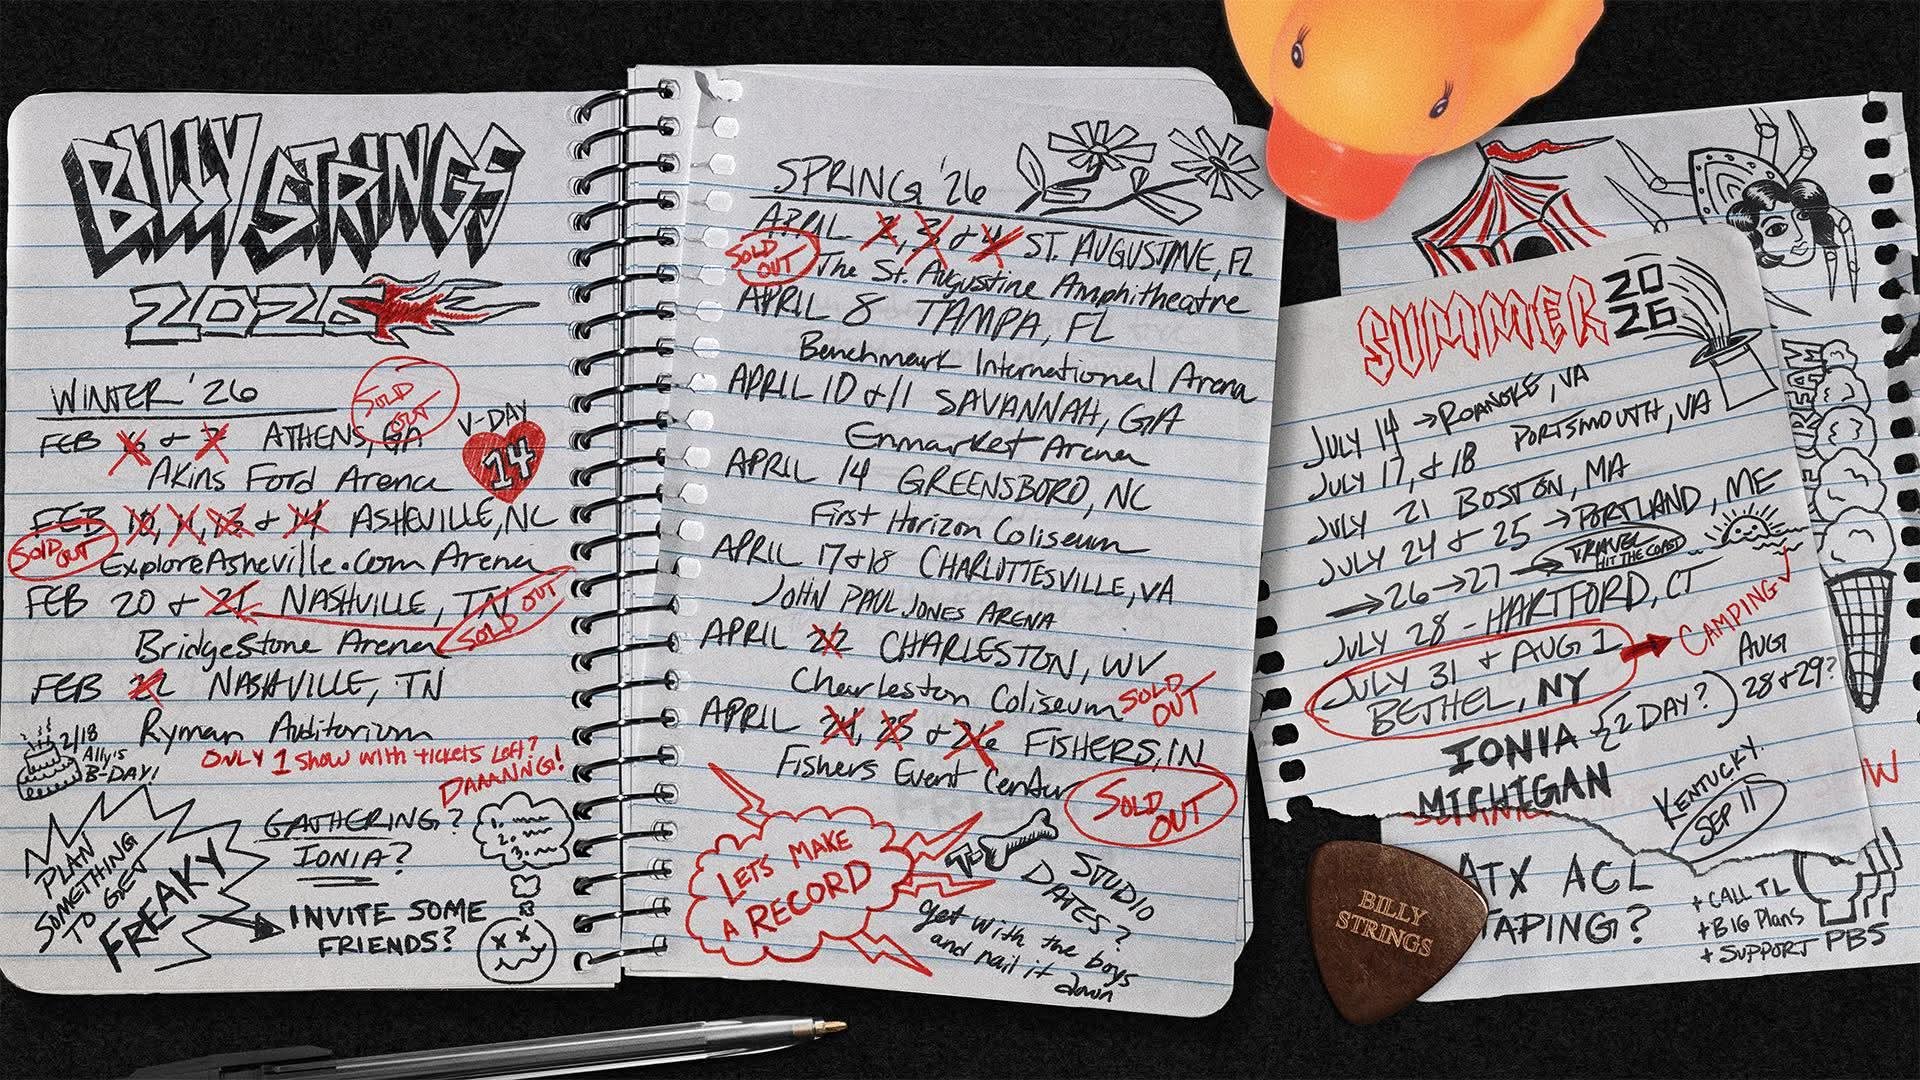 BILLY STRINGS
2026
WINTER '26
SOLD OUT
FEB 6 & 7 ATHENS, GA
Akins Ford Arena
V-DAY
14
FEB 10, 11, 13 & 14 ASHEVILLE, NC
SOLD OUT
ExploreAsheville.com Arena
FEB 20 & 21 NASHVILLE, TN
SOLD OUT
Bridgestone Arena
FEB 22 NASHVILLE, TN
Ryman Auditorium
2/18
Ally's
B-DAY!
ONLY 1 show with tickets left?
DAAANNG!
PLAN
SOMETHING
TO GET
FREAKY
GATHERING?
IONIA?
1.
2.
3.
INVITE SOME
FRIENDS?
SPRING '26
APRIL 2, 3 & 4 ST. AUGUSTINE, FL
SOLD OUT
The St. Augustine Amphitheatre
APRIL 8 TAMPA, FL
Benchmark International Arena
APRIL 10 & 11 SAVANNAH, GA
Enmarket Arena
APRIL 14 GREENSBORO, NC
First Horizon Coliseum
APRIL 17 & 18 CHARLOTTESVILLE, VA
JOHN PAUL JONES ARENA
APRIL 22 CHARLESTON, WV
Charleston Coliseum
SOLD OUT
APRIL 24, 25 & 26 FISHERS, IN
Fishers Event Center
SOLD OUT
LETS MAKE
A RECORD
STUDIO
DATES?
get with the boys
and nail it
down
SUMMER
20
26
JULY 14 → ROANOKE, VA
JULY 17, & 18 PORTSMOUTH, VA
JULY 21 BOSTON, MA
JULY 24 & 25 → PORTLAND, ME
→ 26 → 27 → TRAVEL
HIT THE COAST
JULY 28 - HARTFORD, CT
JULY 31 & AUG 1 → CAMPING
BETHEL, NY
IONIA {2 DAY?) AUG
28 & 29?
MICHIGAN
KENTUCKY
SEP 11
ATX ACL
TAPING?
+ CALL TL
+ BIG Plans
+ SUPPORT PBS
BILLY
STRINGS